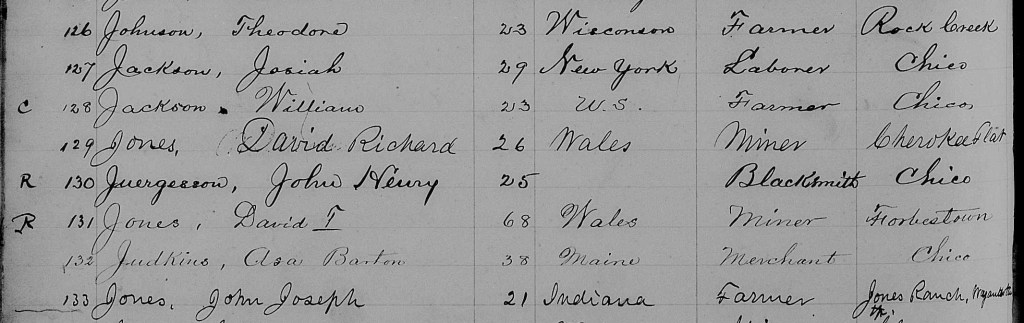 126 Johnson, Theodore 23 Wisconson Farmer Rock Creek
127 Jackson, Josiah 29 New York Laborer Chico
C 128 Jackson. William 23 U.S. Farmer Chico
129 Jones, David Richard 26 Wales Miner Cherokee Flat
R 130 Juergesson, John Henry 25 Blacksmith Chico
R 131 Jones, David T 68 Wales Miner Forbestown
132 Judkins, Asa Barton 38 Maine Merchant Chico
133 Jones, John Joseph 21 Indiana Farmer Jones Ranch,